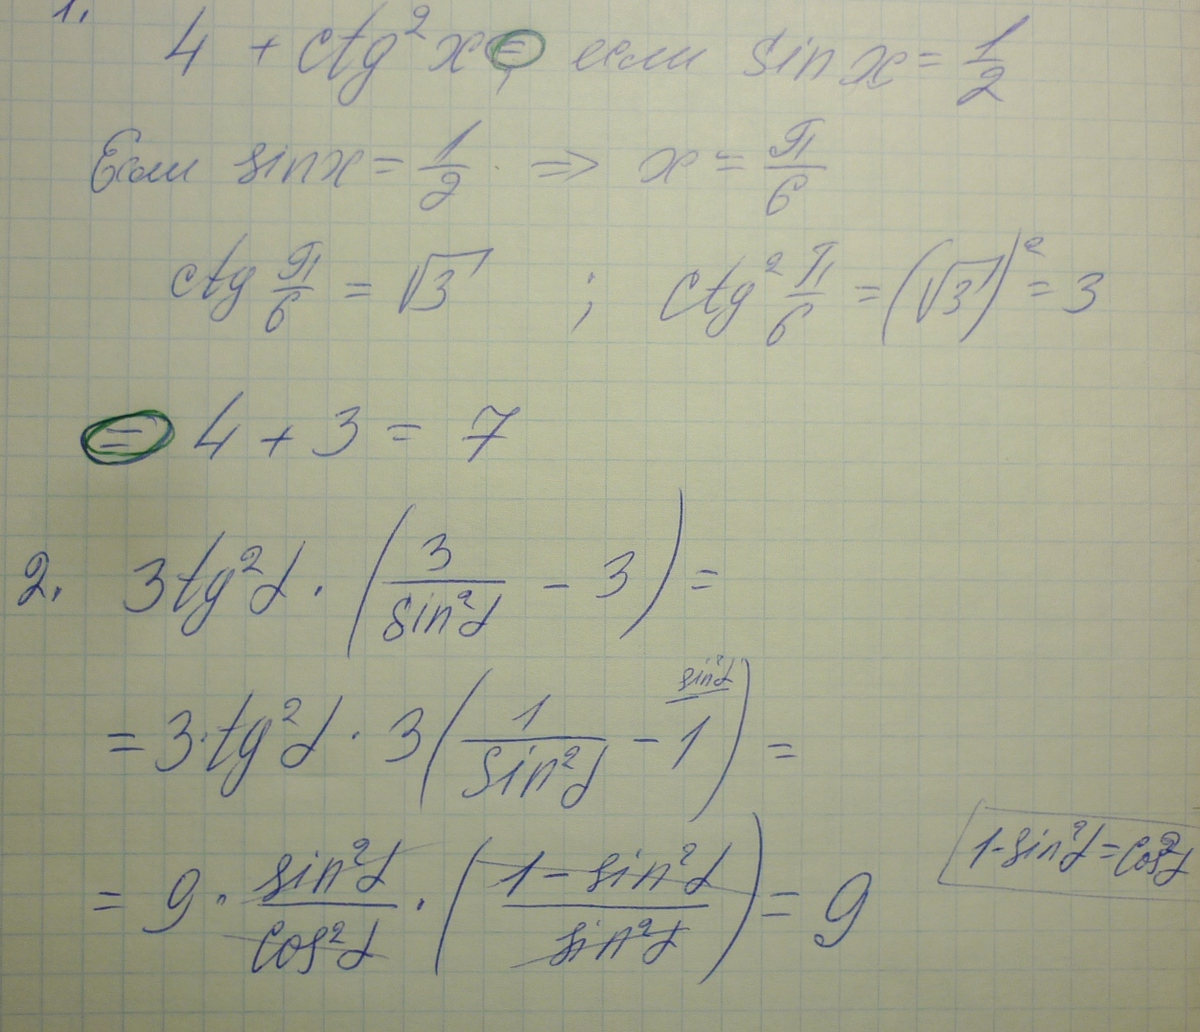 1.
4 + ctg²x =, если sin x = 1/2
Если sin x = 1/2 ⇒ x = π/6
ctg π/6 = √3 ; ctg² π/6 = (√3)² = 3
= 4 + 3 = 7
2. 3tg²α · (3/sin²α − 3) =
= 3·tg²α · 3(1/sin²α − 1) = sin²α
= 9 · sin²α/cos²α · (1 − sin²α/sin²α) = 9 1-sin²α=cos²α